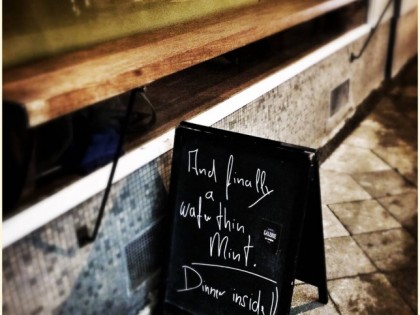 And finally
a
wafer thin
Mint.
Dinner inside!!